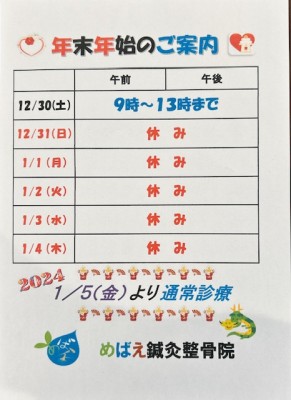 年末年始のご案内
午前 午後
12/30(土) 9時～13時まで
12/31(日) 休み
1/1(月) 休み
1/2(火) 休み
1/3(水) 休み
1/4(木) 休み
2024
1/5(金)より通常診療
めばえ
めばえ鍼灸整骨院